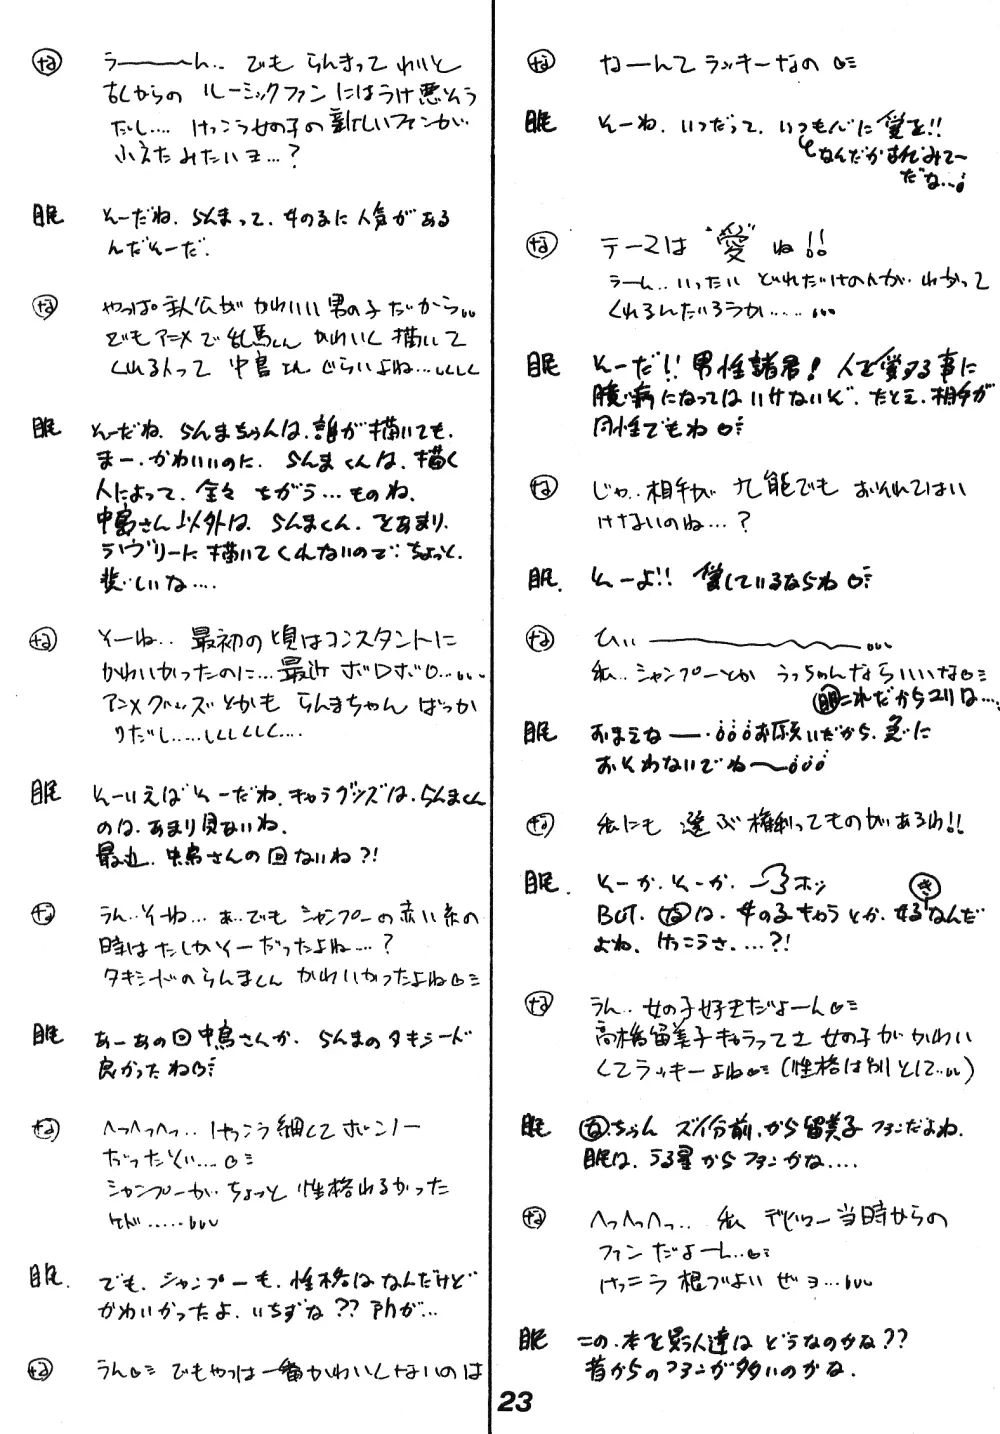 な うーーーん‥ でも らんまって わりと
古くからの ルーミックファン にはうけ悪そう
だし‥‥ けっこう女の子の新しいファンが
ふえたみたいヨ…?
眠 そーだね. らんまって. 女の子に人気がある
んだそーだ.
な やっぱ主人公が かわいい男の子だから‥
でもアニメで乱馬くん かわいく描いて
くれる人って 中島さんぐらいよね…しくしく
眠 そーだね. らんまちゃんは. 誰が描いても.
まー. かわいいのに. らんまくんは. 描く
人によって. 全々 ちがう…ものね.
中島さん以外は. らんまくん. を あまり.
ラヴリーに描いてくれないので. ちょっと.
悲しいな‥‥
な そーね‥ 最初の頃はコンスタントに
かわいかったのに…最近ボロボロ…
アニメグッズとかも らんまちゃん ばっか
りだし‥‥しくしくしく‥‥
眠 そーいえばそーだね. キャラグッズは. らんまくん
のは. あまり見ないね.
最近. 中島さんの回ないね?!
な うん‥そーね… あ‥でも シャンプーの赤い糸の
時は たしかそーだったよね…?
タキシードのらんまくん かわいかったよね♡
眠 あーあの回中島さんか. らんまのタキシード
良かったね♡
な へっへっへっ‥ けっこう細くて ボンノー
だったぞい…♡
シャンプーが‥ちょっと 性格わるかった
ケド‥‥
眠. でも. シャンプーも. 性格はなんだけど
かわいかったよ. いちずな??所が…
な うん♡ でもやっぱ一番かわいくないのは
な なーんてラッキーなの♡
眠 そーね. いつだって. いつも心に愛を!!
なんだかまんがみてー
だな…
な テーマは “愛” ね!!
うーん‥いったい どれだけの人が‥わかって
くれるんだろうか‥‥
眠 そーだ!! 男性諸君! 人を愛する事に
臆病になってはいけないぞ. たとえ. 相手が
同性でもね♡
な じゃ‥相手が 九能でも おそれてはい
けないのね…?
眠. そーよ!! 愛しているならね♡
な ひぃーーーーー…
私‥シャンプーとか うっちゃんならいいな♡
(眠これだからユリは…
眠 おまえなー・お願いだから. 急に
おそわないでねー
な 私にも 選ぶ権利ってものがあるわ!!
眠. そーか. そーか. ホッ
BUT. なは. 女の子キャラとか. 好きなんだ
よね. けっこうさ.…?!
な うん‥女の子好きだよーん♡
高橋留美子キャラってさ 女の子がかわい
くてラッキーよね♡(性格は別として…)
眠 なちゃん ズイ分前から留美子ファンだよね.
眠は. うる星からファンかな‥‥
な へっへっへっ‥ 私 デビュー当時からの
ファンだよーん‥♡
けっこう根づよいぜヨ…
眠 この. 本を買う人達は どうなのかな??
昔からのファンが多いのかな.
23